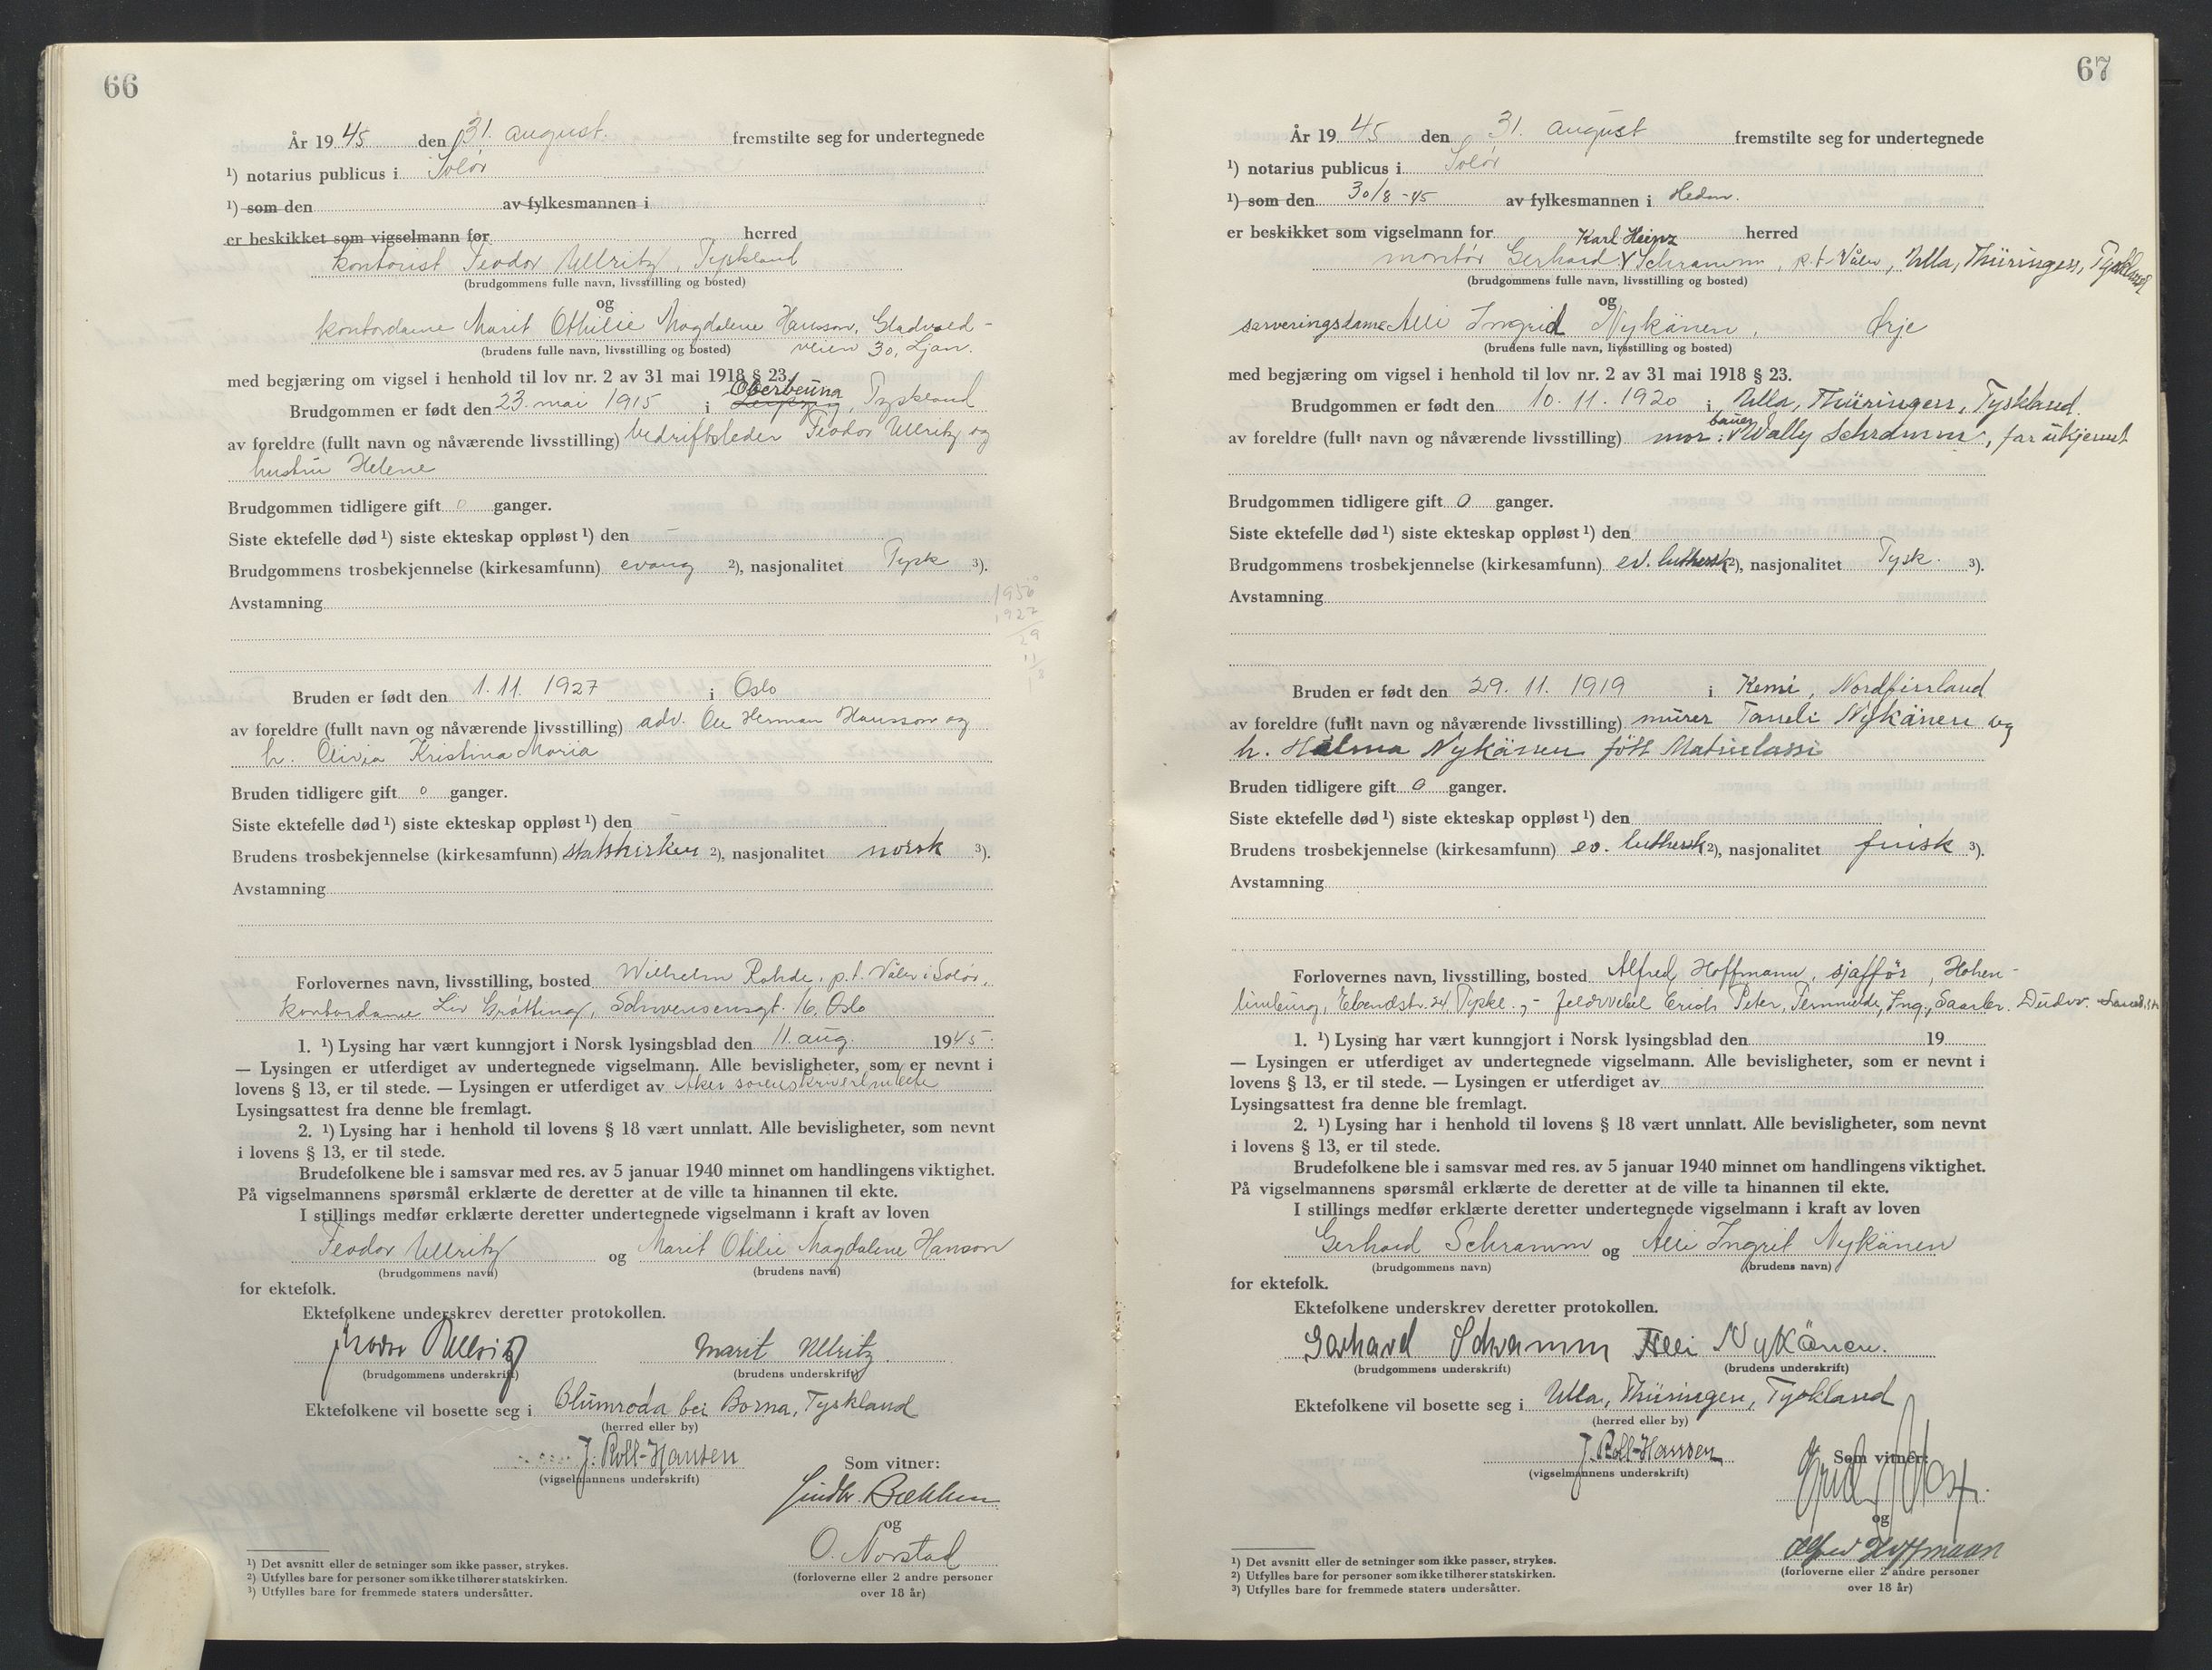 66
År 1945 den 31. august. fremstilte seg for undertegnede
¹) notarius publicus i Solør
¹) som den av fylkesmannen i
er beskikket som vigselmann for herred
kontorist Teodor Ullritz, Tyskland
(brudgommens fulle navn, livsstilling og bosted)
og
kontordame Marit Othilie Magdalene Hansson, Gladvold-
veien 30, Ljan.
(brudens fulle navn, livsstilling og bosted)
med begjæring om vigsel i henhold til lov nr. 2 av 31 mai 1918 § 23.
Oberbeuna
Brudgommen er født den 23. mai 1915 i Leipzig, Tyskland
av foreldre (fullt navn og nåværende livsstilling) bedriftsleder Teodor Ullritz og
hustru Helene
Brudgommen tidligere gift 0 ganger.
Siste ektefelle død ¹) siste ekteskap oppløst ¹) den -
Brudgommens trosbekjennelse (kirkesamfunn) evang ²), nasjonalitet Tysk ³).
Avstamning
1956
1927
29
Bruden er født den 1. 11. 1927 i Oslo
av foreldre (fullt navn og nåværende livsstilling) adv. Ole Herman Hansson og
h. Olivia Kristina Maria
Bruden tidligere gift 0 ganger.
Siste ektefelle død ¹) siste ekteskap oppløst ¹) den -
Brudens trosbekjennelse (kirkesamfunn) statskirken ²), nasjonalitet norsk ³).
Avstamning
Forlovernes navn, livsstilling, bosted Wilhelm Rohde, p.t. Våler i Solør,
kontordame Liv Grøtting, Schwensensgt. 16, Oslo
1. ¹) Lysing har vært kunngjort i Norsk lysingsblad den 11. aug. 1945.
— Lysingen er utferdiget av undertegnede vigselmann. Alle bevisligheter, som er nevnt i
lovens § 13, er til stede. — Lysingen er utferdiget av Aker sorenskriverembete
Lysingsattest fra denne ble fremlagt.
2. ¹) Lysing har i henhold til lovens § 18 vært unnlatt. Alle bevisligheter, som nevnt
i lovens § 13, er til stede.
Brudefolkene ble i samsvar med res. av 5 januar 1940 minnet om handlingens viktighet.
På vigselmannens spørsmål erklærte de deretter at de ville ta hinannen til ekte.
I stillings medfør erklærte deretter undertegnede vigselmann i kraft av loven
Teodor Ullritz og Marit Otilie Magdalene Hanson
(brudgommens navn) (brudens navn)
for ektefolk.
Ektefolkene underskrev deretter protokollen.
Teodor Ullritz Marit Ullritz.
(brudgommens underskrift) (brudens underskrift)
Ektefolkene vil bosette seg i Blumroda bei Borna, Tyskland
(herred eller by)
J. Roll-Hansen
(vigselmannens underskrift)
Som vitner:
Gudbr. Bækken
og
O. Norstad
(forloverne eller 2 andre personer
over 18 år)
¹) Det avsnitt eller de setninger som ikke passer, strykes.
²) Utfylles bare for personer som ikke tilhører statskirken.
³) Utfylles bare for fremmede staters undersåtter.
67
År 1945 den 31. august fremstilte seg for undertegnede
¹) notarius publicus i Solør
¹) som den 30/8-45 av fylkesmannen i Hedm.
er beskikket som vigselmann for herred
Karl Heinz
montør Gerhard Schramm, p.t. Våler, Ulla, Thüringen, Tyskland
(brudgommens fulle navn, livsstilling og bosted)
og
serveringsdame Alli Ingrid Nykänen, Ørje
(brudens fulle navn, livsstilling og bosted)
med begjæring om vigsel i henhold til lov nr. 2 av 31 mai 1918 § 23.
Brudgommen er født den 10. 11. 1920 i Ulla, Thüringen, Tyskland.
bauer
av foreldre (fullt navn og nåværende livsstilling) mor: Wally Schramm, far ukjennt
Brudgommen tidligere gift 0 ganger.
Siste ektefelle død ¹) siste ekteskap oppløst ¹) den
Brudgommens trosbekjennelse (kirkesamfunn) ev. luthersk ²), nasjonalitet Tysk. ³).
Avstamning
Bruden er født den 29. 11. 1919 i Kemi, Nordfinnland
av foreldre (fullt navn og nåværende livsstilling) murer Taneli Nykänen og
h. Halma Nykänen født Matinlassi
Bruden tidligere gift 0 ganger.
Siste ektefelle død ¹) siste ekteskap oppløst ¹) den
Brudens trosbekjennelse (kirkesamfunn) ev. luthersk ²), nasjonalitet finsk ³).
Avstamning
Forlovernes navn, livsstilling, bosted Alfred Hoffmann, sjåffør, Hohen-
limburg, 24, Tyskl., - feldwebel Erich Peter, Ing., Saarbr.
1. ¹) Lysing har vært kunngjort i Norsk lysingsblad den 19
— Lysingen er utferdiget av undertegnede vigselmann. Alle bevisligheter, som er nevnt i
lovens § 13, er til stede. — Lysingen er utferdiget av
Lysingsattest fra denne ble fremlagt.
2. ¹) Lysing har i henhold til lovens § 18 vært unnlatt. Alle bevisligheter, som nevnt
i lovens § 13, er til stede.
Brudefolkene ble i samsvar med res. av 5 januar 1940 minnet om handlingens viktighet.
På vigselmannens spørsmål erklærte de deretter at de ville ta hinannen til ekte.
I stillings medfør erklærte deretter undertegnede vigselmann i kraft av loven
Gerhard Schramm og Alli Ingrit Nykänen
(brudgommens navn) (brudens navn)
for ektefolk.
Ektefolkene underskrev deretter protokollen.
Gerhard Schramm Alli Nykänen.
(brudgommens underskrift) (brudens underskrift)
Ektefolkene vil bosette seg i Ulla, Thüringen, Tyskland
(herred eller by)
J. Roll-Hansen
(vigselmannens underskrift)
Som vitner:
og
Alfred Hoffmann
(forloverne eller 2 andre personer
over 18 år)
¹) Det avsnitt eller de setninger som ikke passer, strykes.
²) Utfylles bare for personer som ikke tilhører statskirken.
³) Utfylles bare for fremmede staters undersåtter.